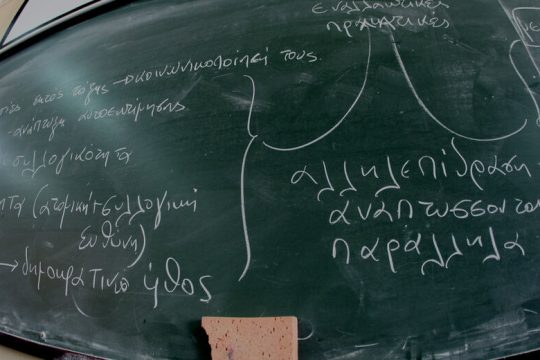 εναλλακτικές
πρακτικές
εκτός τάξης → κοινωνικοποίησή τους
- ανάπτυξη αυτοεκτίμησης
συλλογικότητα
(ατομική + συλλογική
ευθύνη)
→ δημοκρατικό ήθος
αλληλεπίδραση
αναπτύσσοντα
παράλληλα